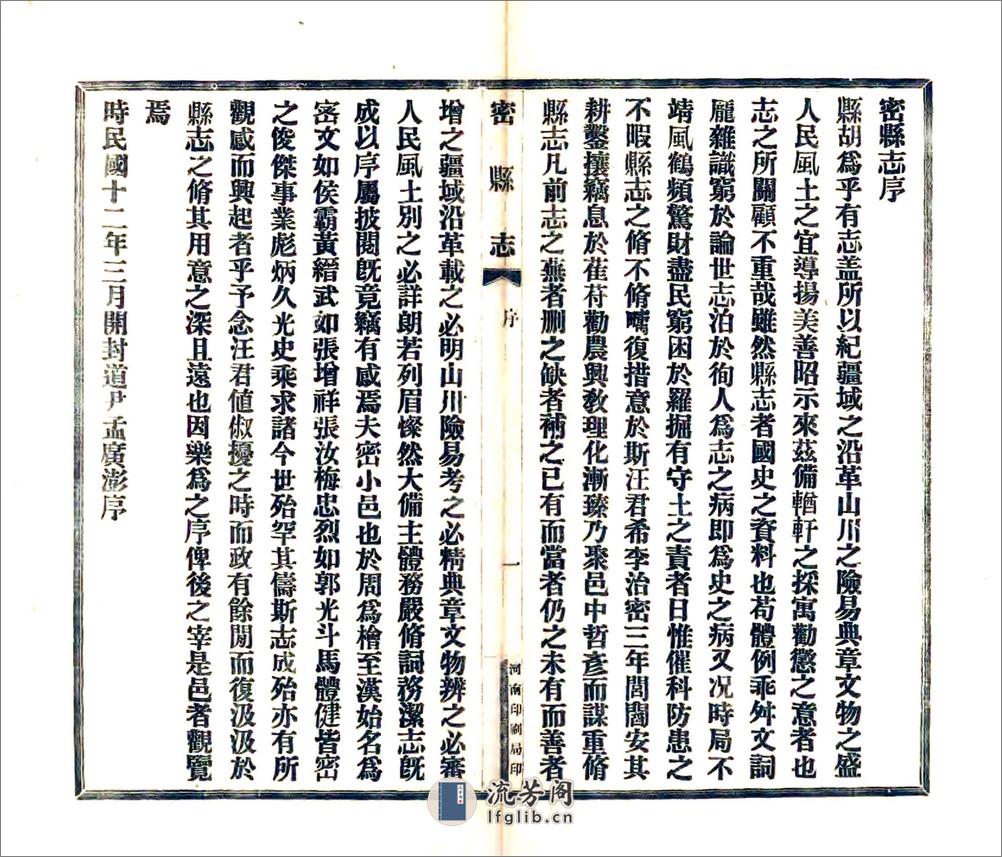 密縣志序
縣胡爲乎有志盖所以紀疆域之沿革山川之險易典章文物之盛
人民風土之宜導揚美善昭示來茲備輶軒之採寓勸懲之意者也
志之所關顧不重哉雖然縣志者國史之資料也苟體例乖舛文詞
龐雜識窮於論世志泊於徇人爲志之病即爲史之病又况時局不
靖風鶴頻驚財盡民窮困於羅掘有守土之責者日惟催科防患之
不暇縣志之脩不脩疇復措意於斯汪君希李治密三年閭閻安其
耕鑿攘竊息於萑苻勸農興敎理化漸臻乃聚邑中哲彥而謀重脩
縣志凡前志之蕪者刪之缺者補之已有而當者仍之未有而善者
密縣志
序
一
河南印刷局印
增之疆域沿革載之必明山川險易考之必精典章文物辨之必審
人民風土別之必詳朗若列眉燦然大備主體務嚴脩詞務潔志旣
成以序屬披閱旣竟竊有感焉夫密小邑也於周爲檜至漢始名爲
密文如侯霸黃縉武如張增祥張汝梅忠烈如郭光斗馬體健皆密
之俊傑事業彪炳久光史乘求諸今世殆罕其儔斯志成殆亦有所
觀感而興起者乎予念汪君値俶擾之時而政有餘閒而復汲汲於
縣志之脩其用意之深且遠也因樂爲之序俾後之宰是邑者觀覽
焉
時民國十二年三月開封道尹孟廣澎序
流芳阁
lfglib.cn